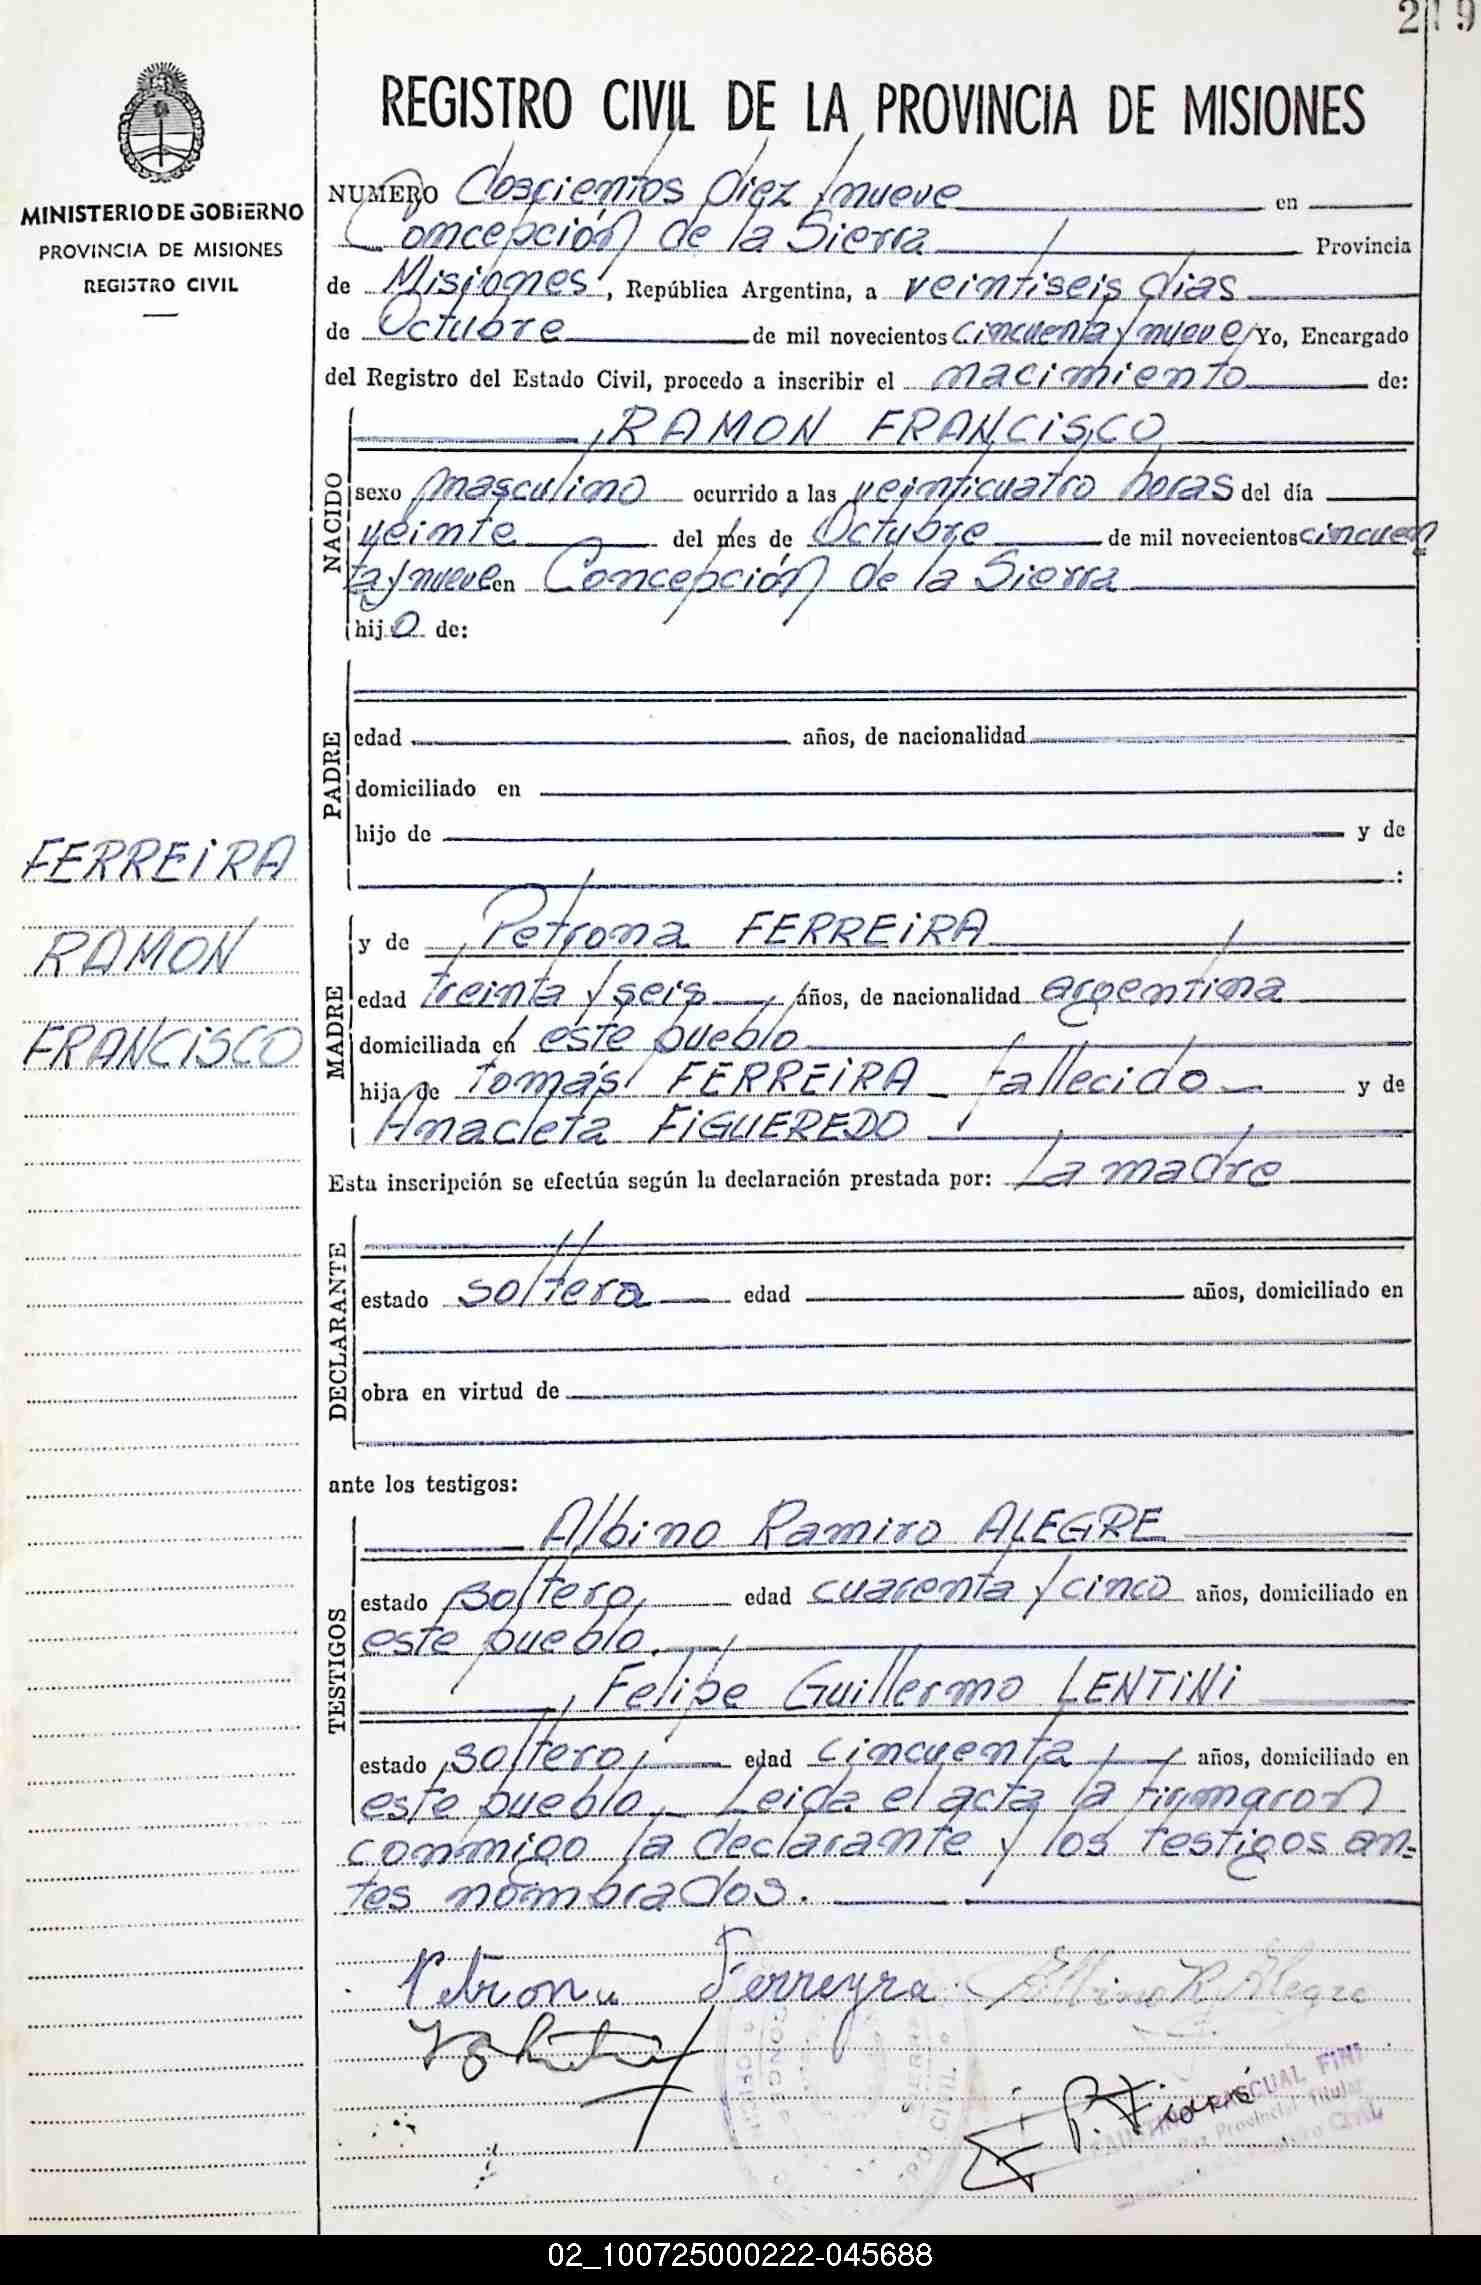 219
MINISTERIO DE GOBIERNO
PROVINCIA DE MISIONES
REGISTRO CIVIL
FERREIRA
RAMON
FRANCISCO
REGISTRO CIVIL DE LA PROVINCIA DE MISIONES
NUMERO doscientos diez y nueve en
Concepción de la Sierra Provincia
de Misiones, República Argentina, a veintiseis dias
de Octubre de mil novecientos cincuenta y nueve Yo, Encargado
del Registro del Estado Civil, procedo a inscribir el nacimiento de:
NACIDO
RAMON FRANCISCO
sexo masculino ocurrido a las veinticuatro horas del día
veinte del mes de Octubre de mil novecientos cincuen
ta y nueve en Concepción de la Sierra
hijo de:
PADRE
edad años, de nacionalidad
domiciliado en
hijo de y de
:
MADRE
y de Petrona FERREIRA
edad treinta y seis años, de nacionalidad argentina
domiciliada en este pueblo
hija de Tomás FERREIRA - fallecido - y de
Anacleta FIGUEREDO
Esta inscripción se efectúa según la declaración prestada por: La madre
DECLARANTE
estado soltera edad años, domiciliado en
obra en virtud de
ante los testigos:
TESTIGOS
Albino Ramiro ALEGRE
estado soltero, edad cuarenta y cinco años, domiciliado en
este pueblo.
Felipe Guillermo LENTINI
estado soltero, edad cincuenta años, domiciliado en
este pueblo. Leida el acta la firmaron
conmigo la declarante y los testigos an=
tes nombrados.
Petrona Ferreyra Albino R. Alegre
PASCUAL FINI
Provincial Titular
CIVIL
02_100725000222-045688